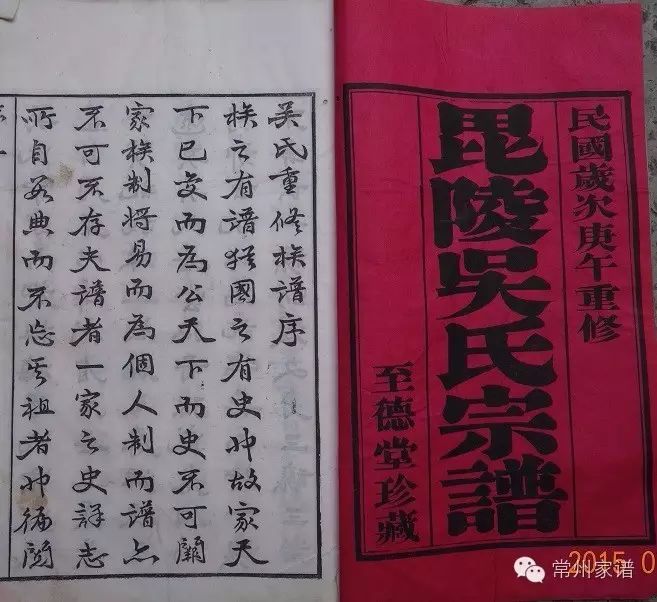 民國歲次庚午重修
毘陵吳氏宗譜
至德堂珍藏
吴氏重修族譜序
族之有譜猶國之有史也故家天
下已变而為公天下而史不可闕
家族制将易而為個人制而譜亦
不可不存夫譜者一家之史詳志
所自数典而不忘其祖者也循閱
常州家谱
2015.0